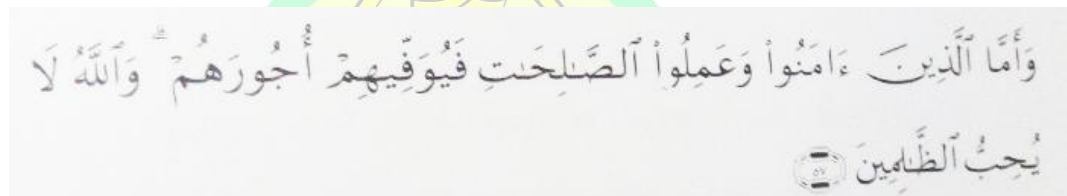 وَأَمَّا ٱلَّذِينَ ءَامَنُوا۟ وَعَمِلُوا۟ ٱلصَّـٰلِحَـٰتِ فَيُوَفِّيهِمْ أُجُورَهُمْ ۗ وَٱللَّهُ لَا
يُحِبُّ ٱلظَّـٰلِمِينَ ٥٧